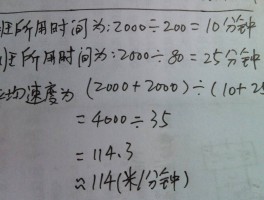 所用时间为:2000÷200=10分钟
所用时间为:2000÷80=25分钟
均速度为 (2000+2000)÷(10+2
=4000÷35
=114.3
≈114(米/分钟)